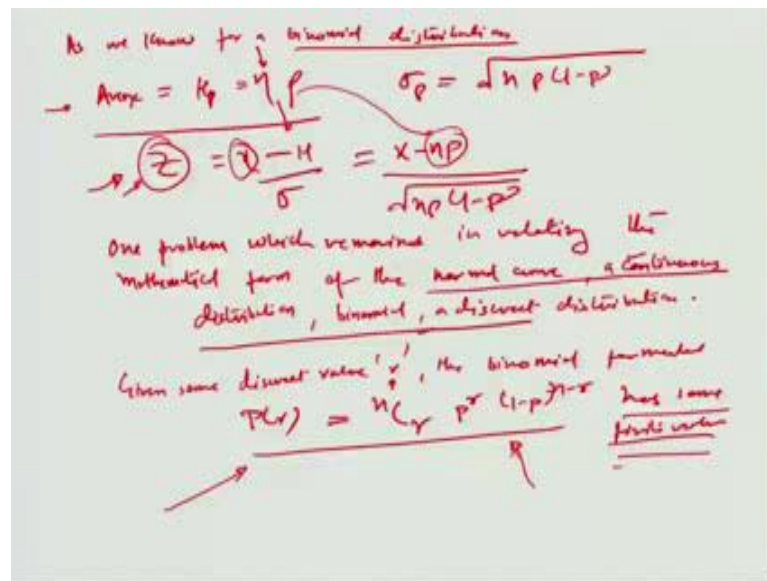 As we know for a binomial distribution
Average = μp = np σp = √np(1-p)
Z = x - μ / σ = x - np / √np(1-p)
One problem which remained in relating the
mathematical form of the normal curve, a continuous
distribution, binomial, a discreet distribution.
Given some discreet value 'r', the binomial
P(r) = nCr p^r (1-p)^n-r has some
finite value